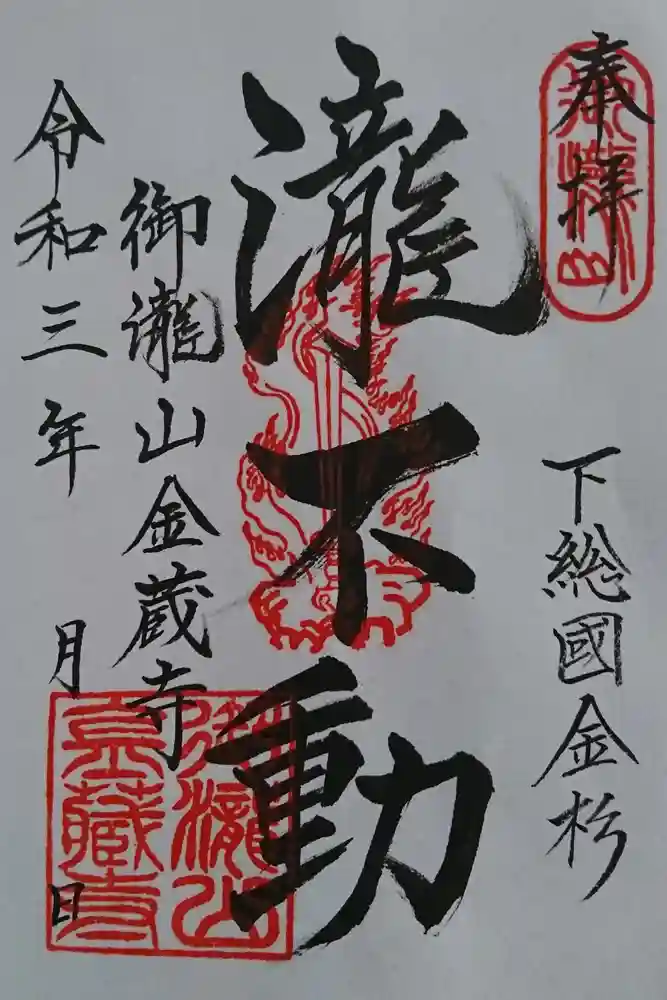 奉拝
下総國金杉
瀧不動
御瀧山金蔵寺
令和三年 月 日
御瀧山
金蔵寺